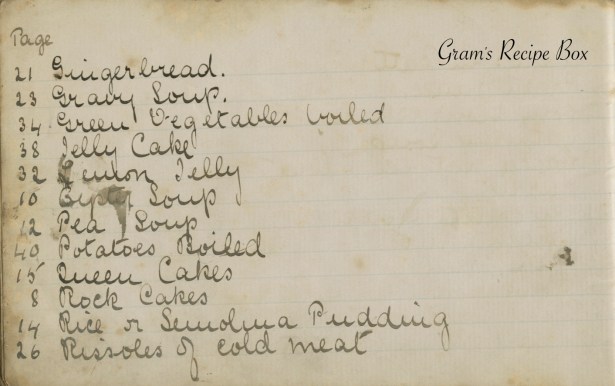 Gram's Recipe Box
Page
21 Gingerbread.
23 Gravy Soup.
34 Green Vegetables boiled
38 Jelly Cake
32 Lemon Jelly
10 Soup
12 Pea Soup
40 Potatoes Boiled
15 Queen Cakes
8 Rock Cakes
14 Rice or Semolina Pudding
26 Rissoles of cold meat